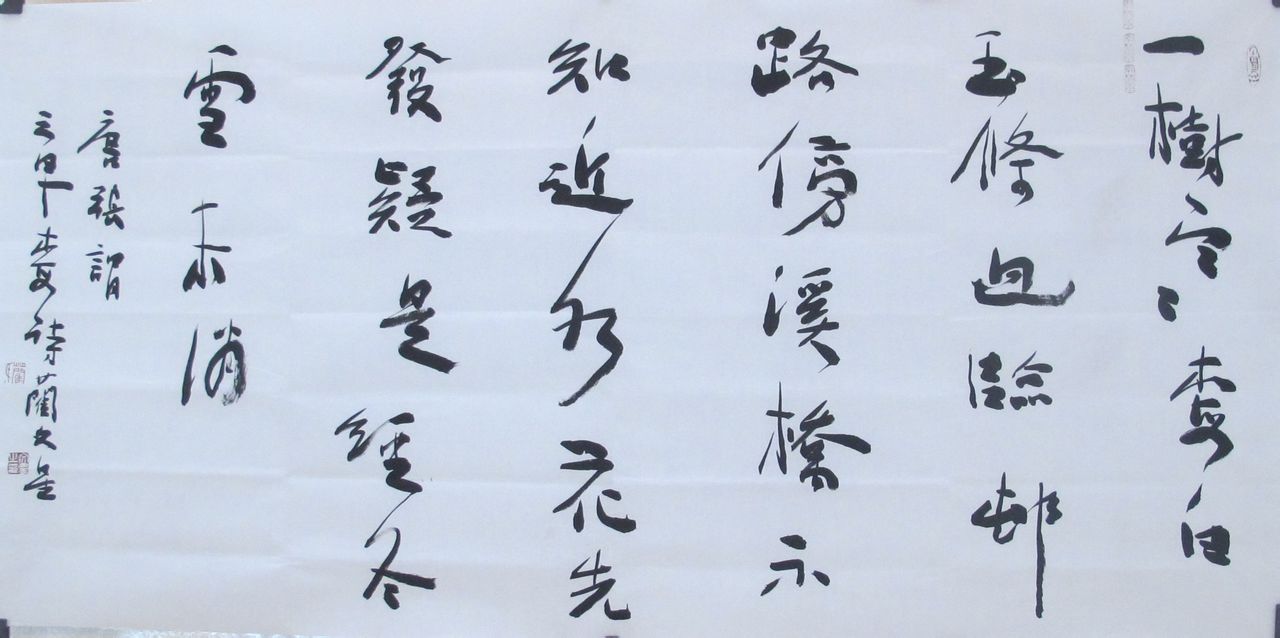 一樹寒梅白
玉條迥臨邨
路傍溪橋不
知近水花先
發疑是經冬
雪未消
唐張謂
之早梅詩蘭文